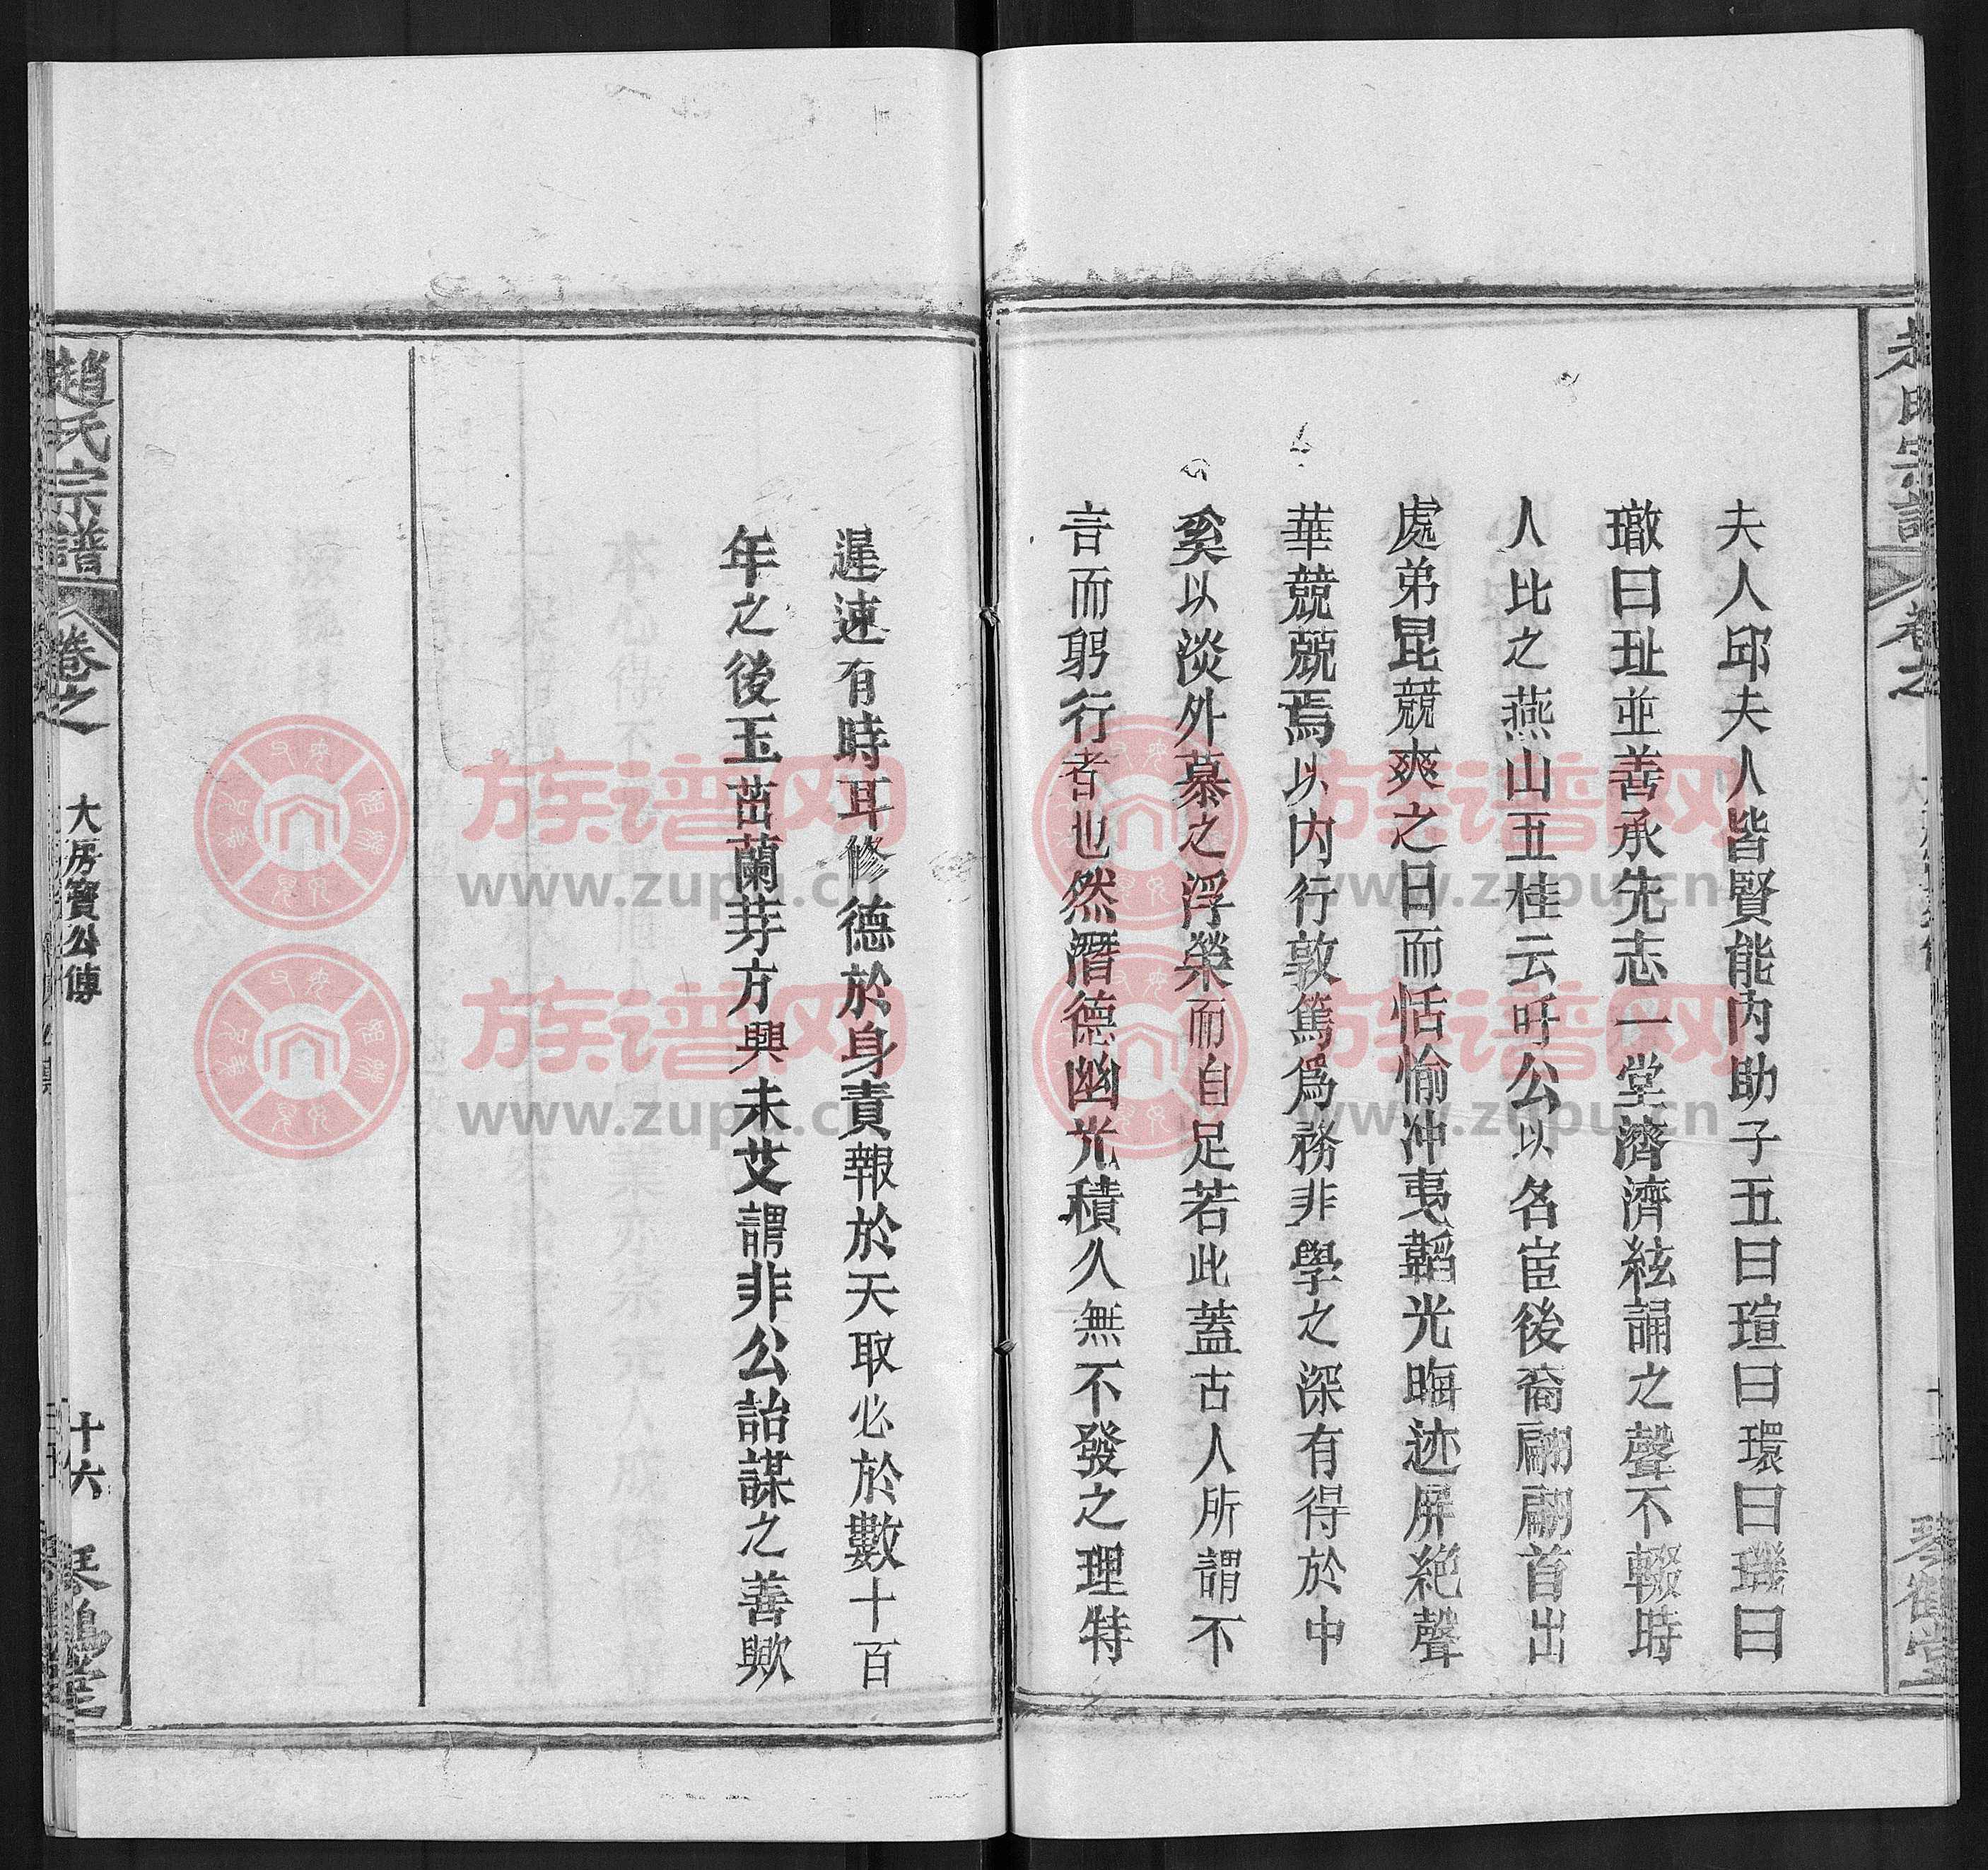 夫人邱夫人皆賢能內助子五曰瑄曰環曰璣曰
璥曰玼並善承先志一堂濟濟絃誦之聲不輟時
人比之燕山五桂云吁公以名宦後裔翩翩首出
處弟昆競爽之日而恬愉冲夷韜光晦迹屏絕聲
華兢兢焉以內行敦篤爲務非學之深有得於中
奚以淡外慕之浮榮而自足若此蓋古人所謂不
言而躬行者也然潛德幽光積久無不發之理特
遲速有時耳修德於身責報於天取必於數十百
年之後玉茁蘭芽方興未艾謂非公詒謀之善歟
趙氏宗譜
卷之
大房寶公傳
十六
琴鶴堂
族谱网
www.zupu.cn
族谱网
www.zupu.cn
族谱网
www.zupu.cn
族谱网
www.zupu.cn